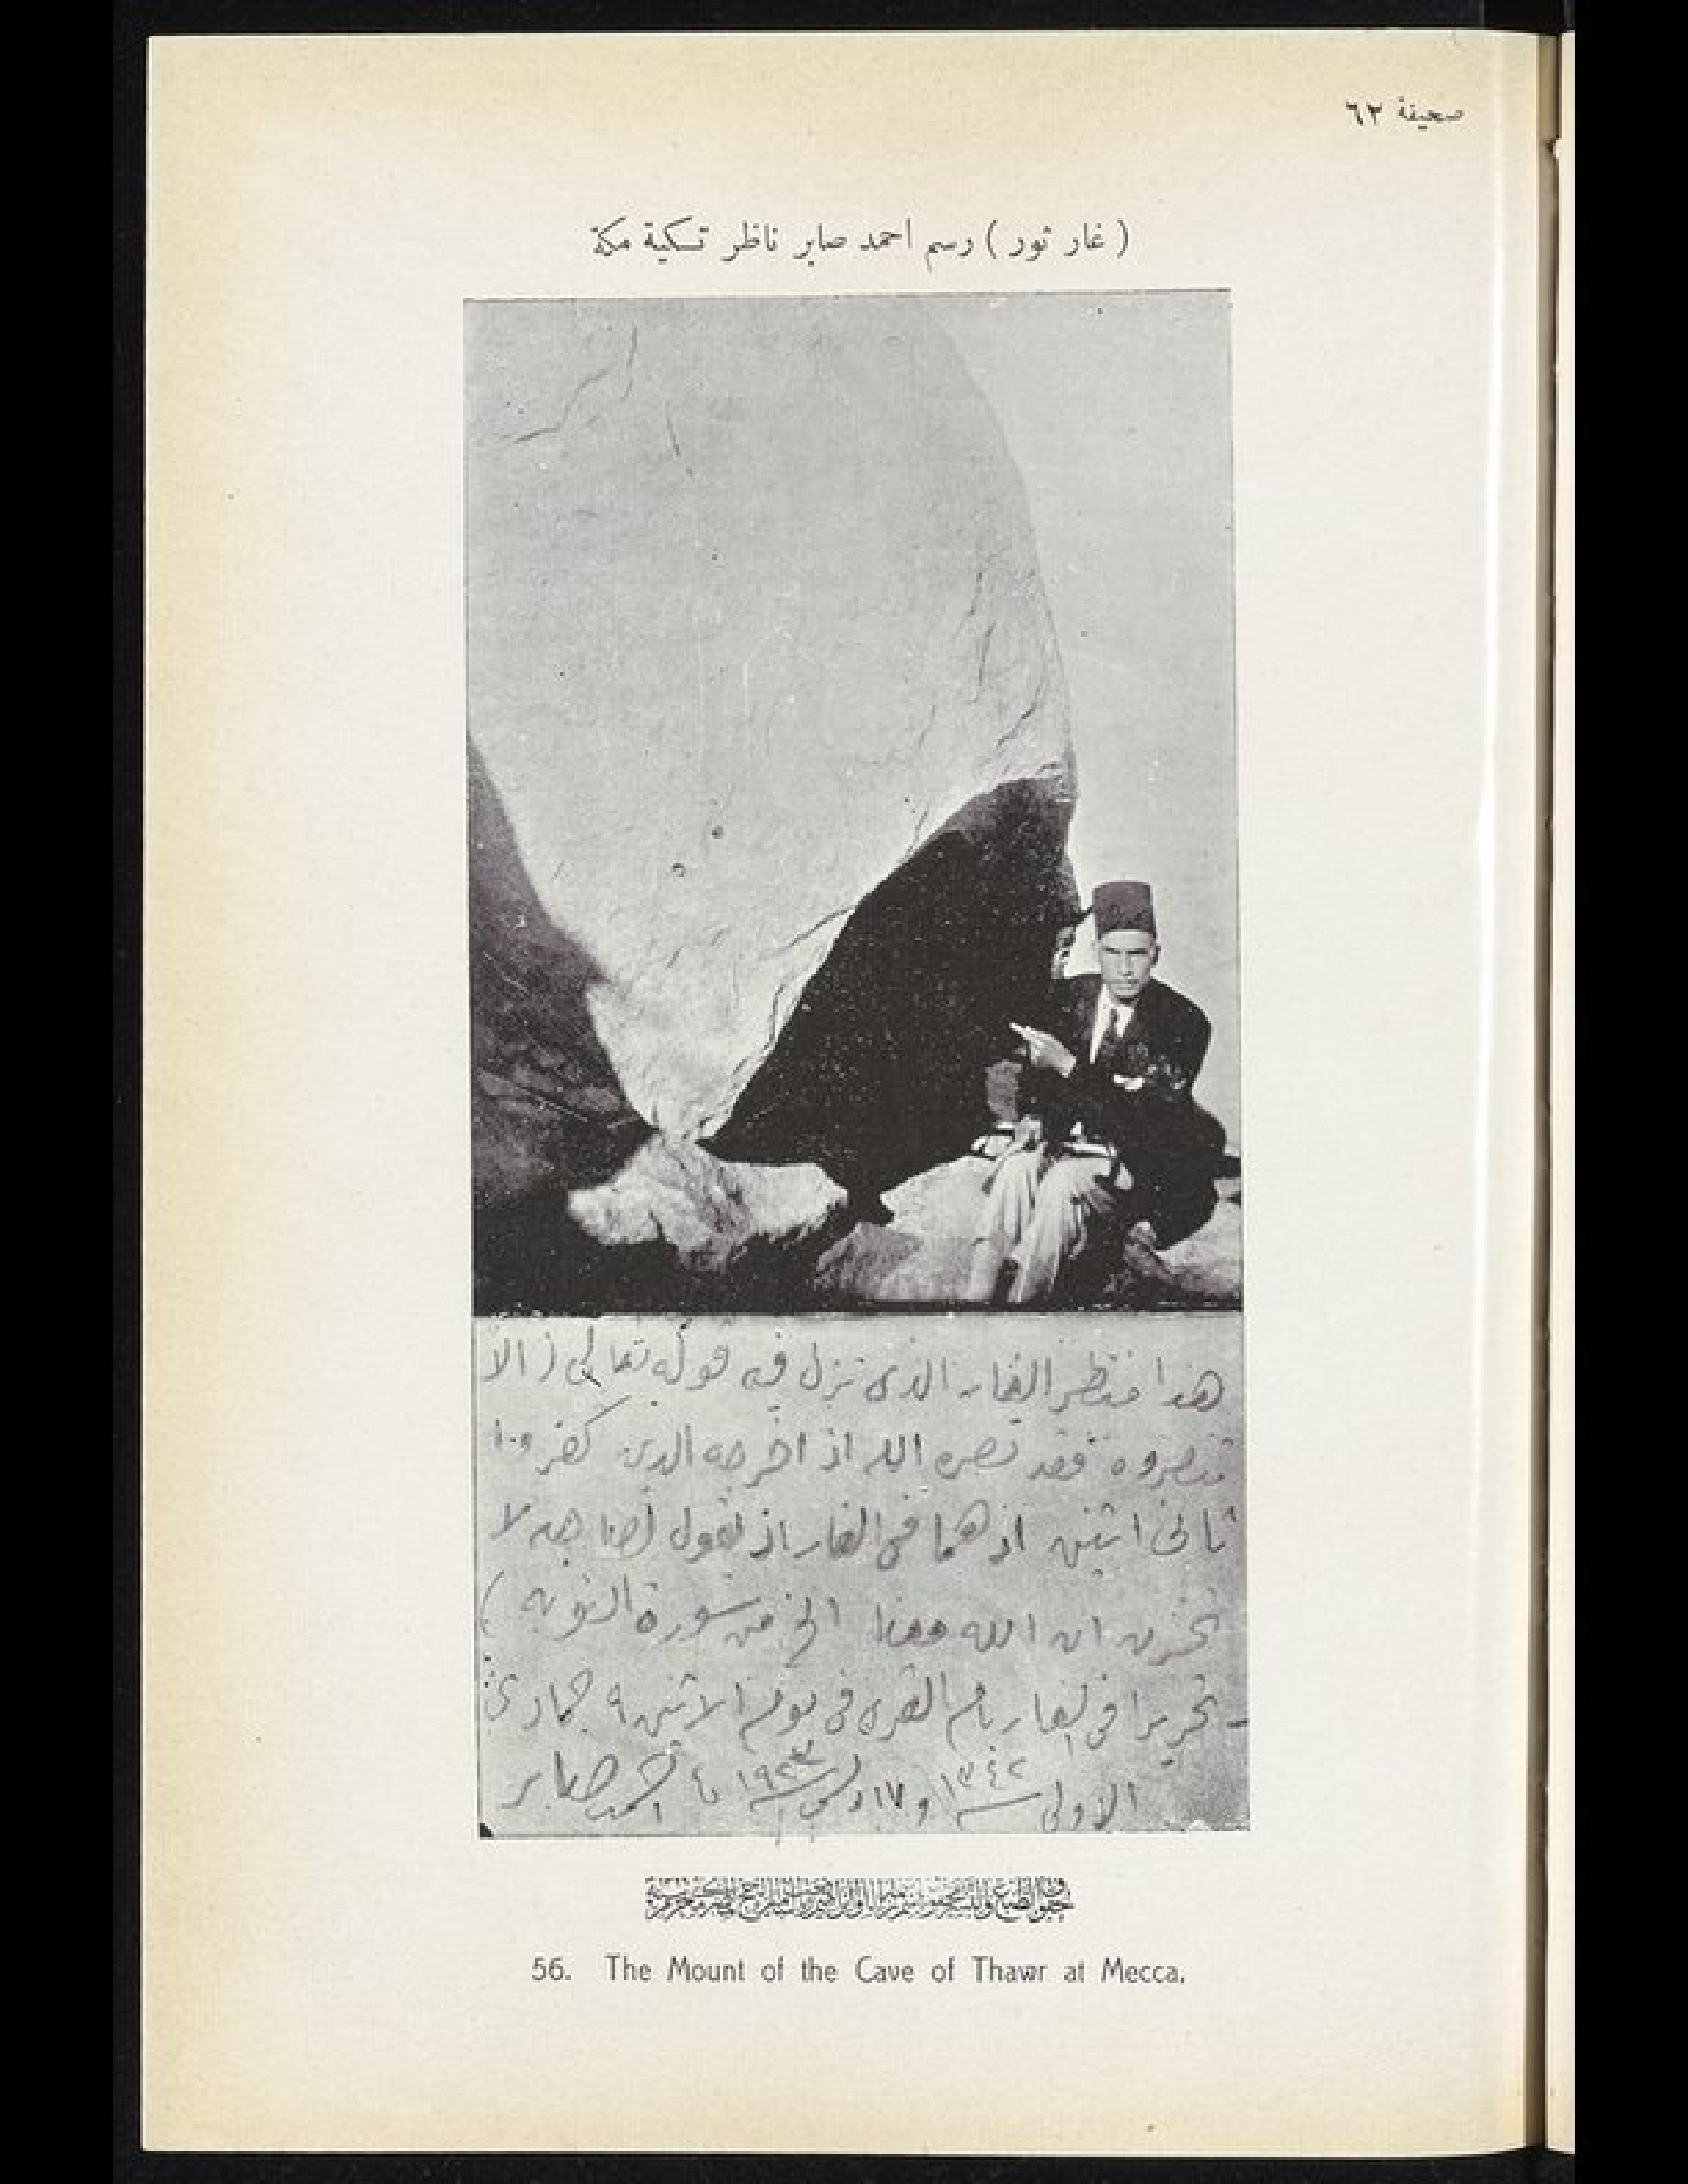 صحيفة ٦٣
( غار ثور ) رسم احمد صابر ناظر تكية مكة
هذا منظر الغار الذى نزل فيه قوله تعالى ( الا
تنصروه فقد نصره الله اذ اخرجه الذين كفروا
ثانى اثنين اذ هما فى الغار اذ يقول لصاحبه لا
تحزن ان الله معنا الخ من سورة التوبه )
تحريرا فى الغار بام القرى فى يوم الاثنين ٩ جمادى
الاولى سنة ١٣٤٢ و ١٧ سنة ١٩٢٣ احمد صابر
56. The Mount of the Cave of Thawr at Mecca.